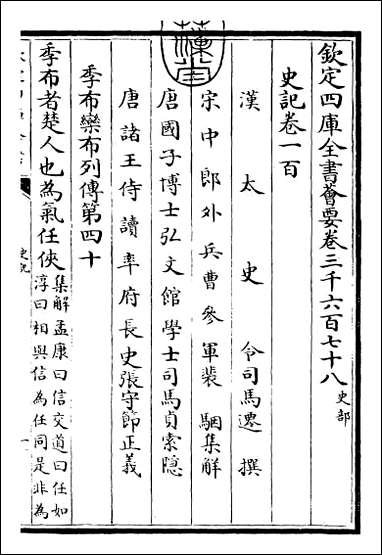 欽定四庫全書薈要卷三千六百七十八史部
史記卷一百
漢太史令司馬遷撰
宋中郎外兵曹參軍裴駰集解
唐國子博士弘文館學士司馬貞索隱
唐諸王侍讀率府長史張守節正義
季布欒布列傳第四十
季布者楚人也為氣任俠
集解孟康曰信交道曰任如
淳曰相與信為任同是非為
史記